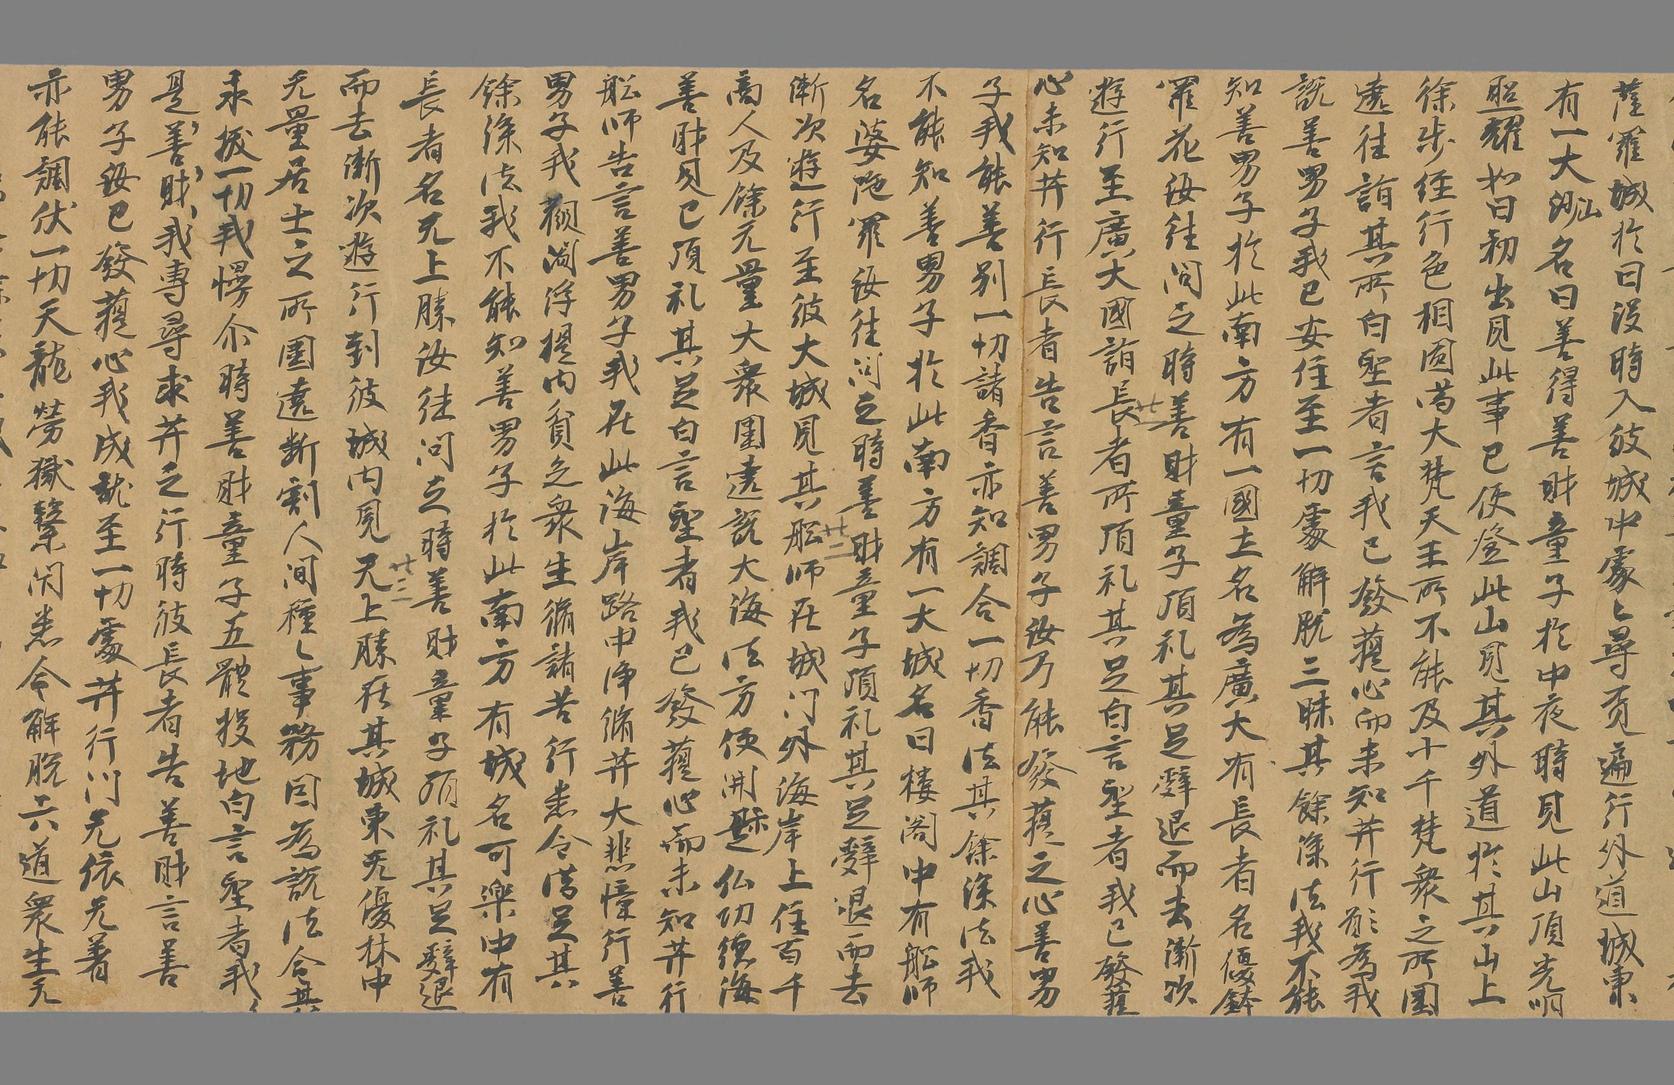 薩羅城於日没時入彼城中處〻尋覓遍行外道城東
有一大山名曰善得善財童子於中夜時見此山頂光明
照耀如日初出見此事已便登此山見其外道於其山上
徐步經行色相圓滿大梵天王所不能及十千梵衆之所圍
遶往詣其所白聖者言我已發𦵮心而未知菩行願爲我
説善男子我已安住至一切處解脱三昧其餘深法我不能
知善男子於此南方有一國土名爲廣大有長者名優鉢
羅花汝往問之時善財童子頂礼其足辭退而去漸次
遊行至廣大國詣長者所頂礼其足白言聖者我已發𦵮
心未知菩行長者告言善男子汝乃能發𦵮之心善男
子我能善别一切諸香亦知調合一切香法其餘深法我
不能知善男子於此南方有一大城名曰樓閣中有船師
名婆陁羅汝往問之時善財童子頂礼其足辭退而去
漸次遊行至彼大城見其船師在城门外海岸上住百千
商人及餘无量大衆圍遶説大海法方便開題仏功德海
善財見已頂礼其足白言聖者我已發𦵮心而未知菩行
船師告言善男子我在此海岸路中浄修菩大悲憧行善
男子我觀閻浮提内貧乏衆生修諸苦行悉令满足其
餘深法我不能知善男子於此南方有城名可樂中有
長者名无上勝汝往问之時善財童子頂礼其足辭退
而去漸次遊行到彼城内見无上勝在其城東无優林中
无量居士之所圍遶断割人间種〻事務因爲説法令其
永拔一切我慢尒時善財童子五體投地白言聖者我〻
是〻善〻財〻我專尋求菩之行時彼長者告善財言善
男子汝已發𦵮心我成就至一切處菩行门无依无著
亦能調伏一切天龍勞獄繫闭悉令解脱六道衆生无
廿一
廿二
廿三